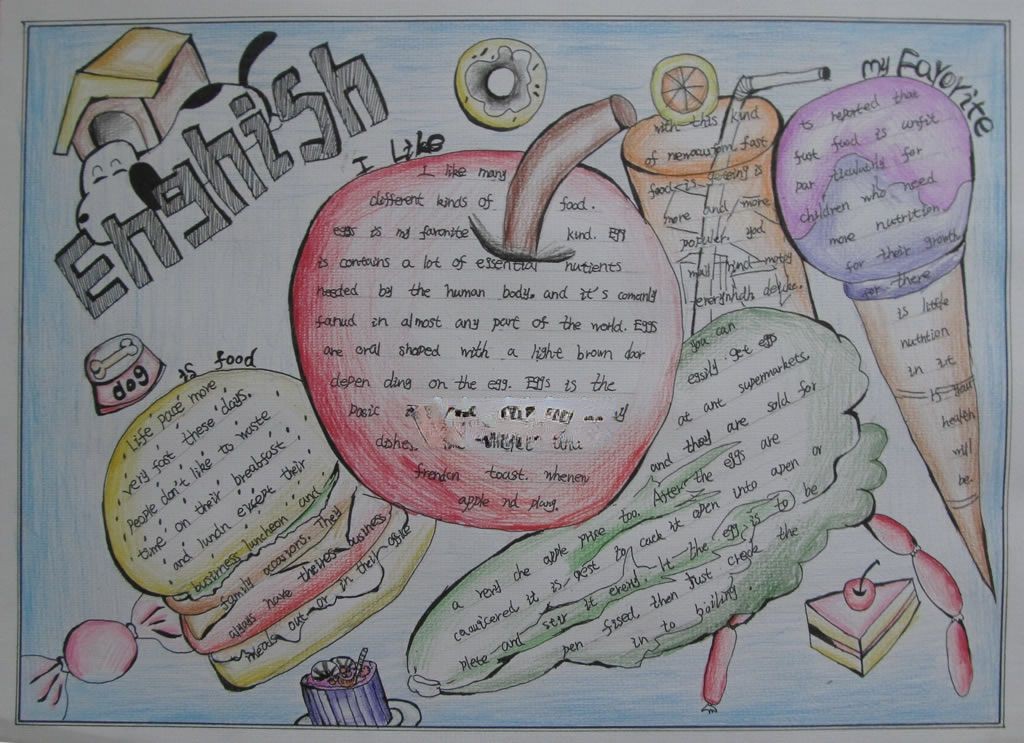 English
I Like
I like many
different kinds of food.
eggs is my favorite kind. Egg
is contains a lot of essential nutients
needed by the human body. and it's comenly
fanud in almost any part of the world. EGGS
are oral shaped with a light brown door
depen ding on the egg. EGGS is the
pasic
dishes.
toast. whenen
apple nd
my Favorite
with this kind
of fast
food is
more and more
popular. you
mail mind
to reported that
fust food is unfit
par ticulauly for
children who need
more nutrition
for their growth
for there
is little
nuthtion
in it
is your
health
will
be.
dog
is food
Life pace more
very fast these days.
People don't like to waste
time on their breakfast
and lundn except their
business luncheon and
family occasions. They
always have theiless business
meads out or in their office
you can
egsily get eggs
at ant supermarkets.
and they are sold for
a reny che apple price too. After the eggs are
cauuicered it is gest to cack it apen unto apen or
plete and stir it ereniy. It the egg is to be
pen fised then fust crack the
in to boiling.